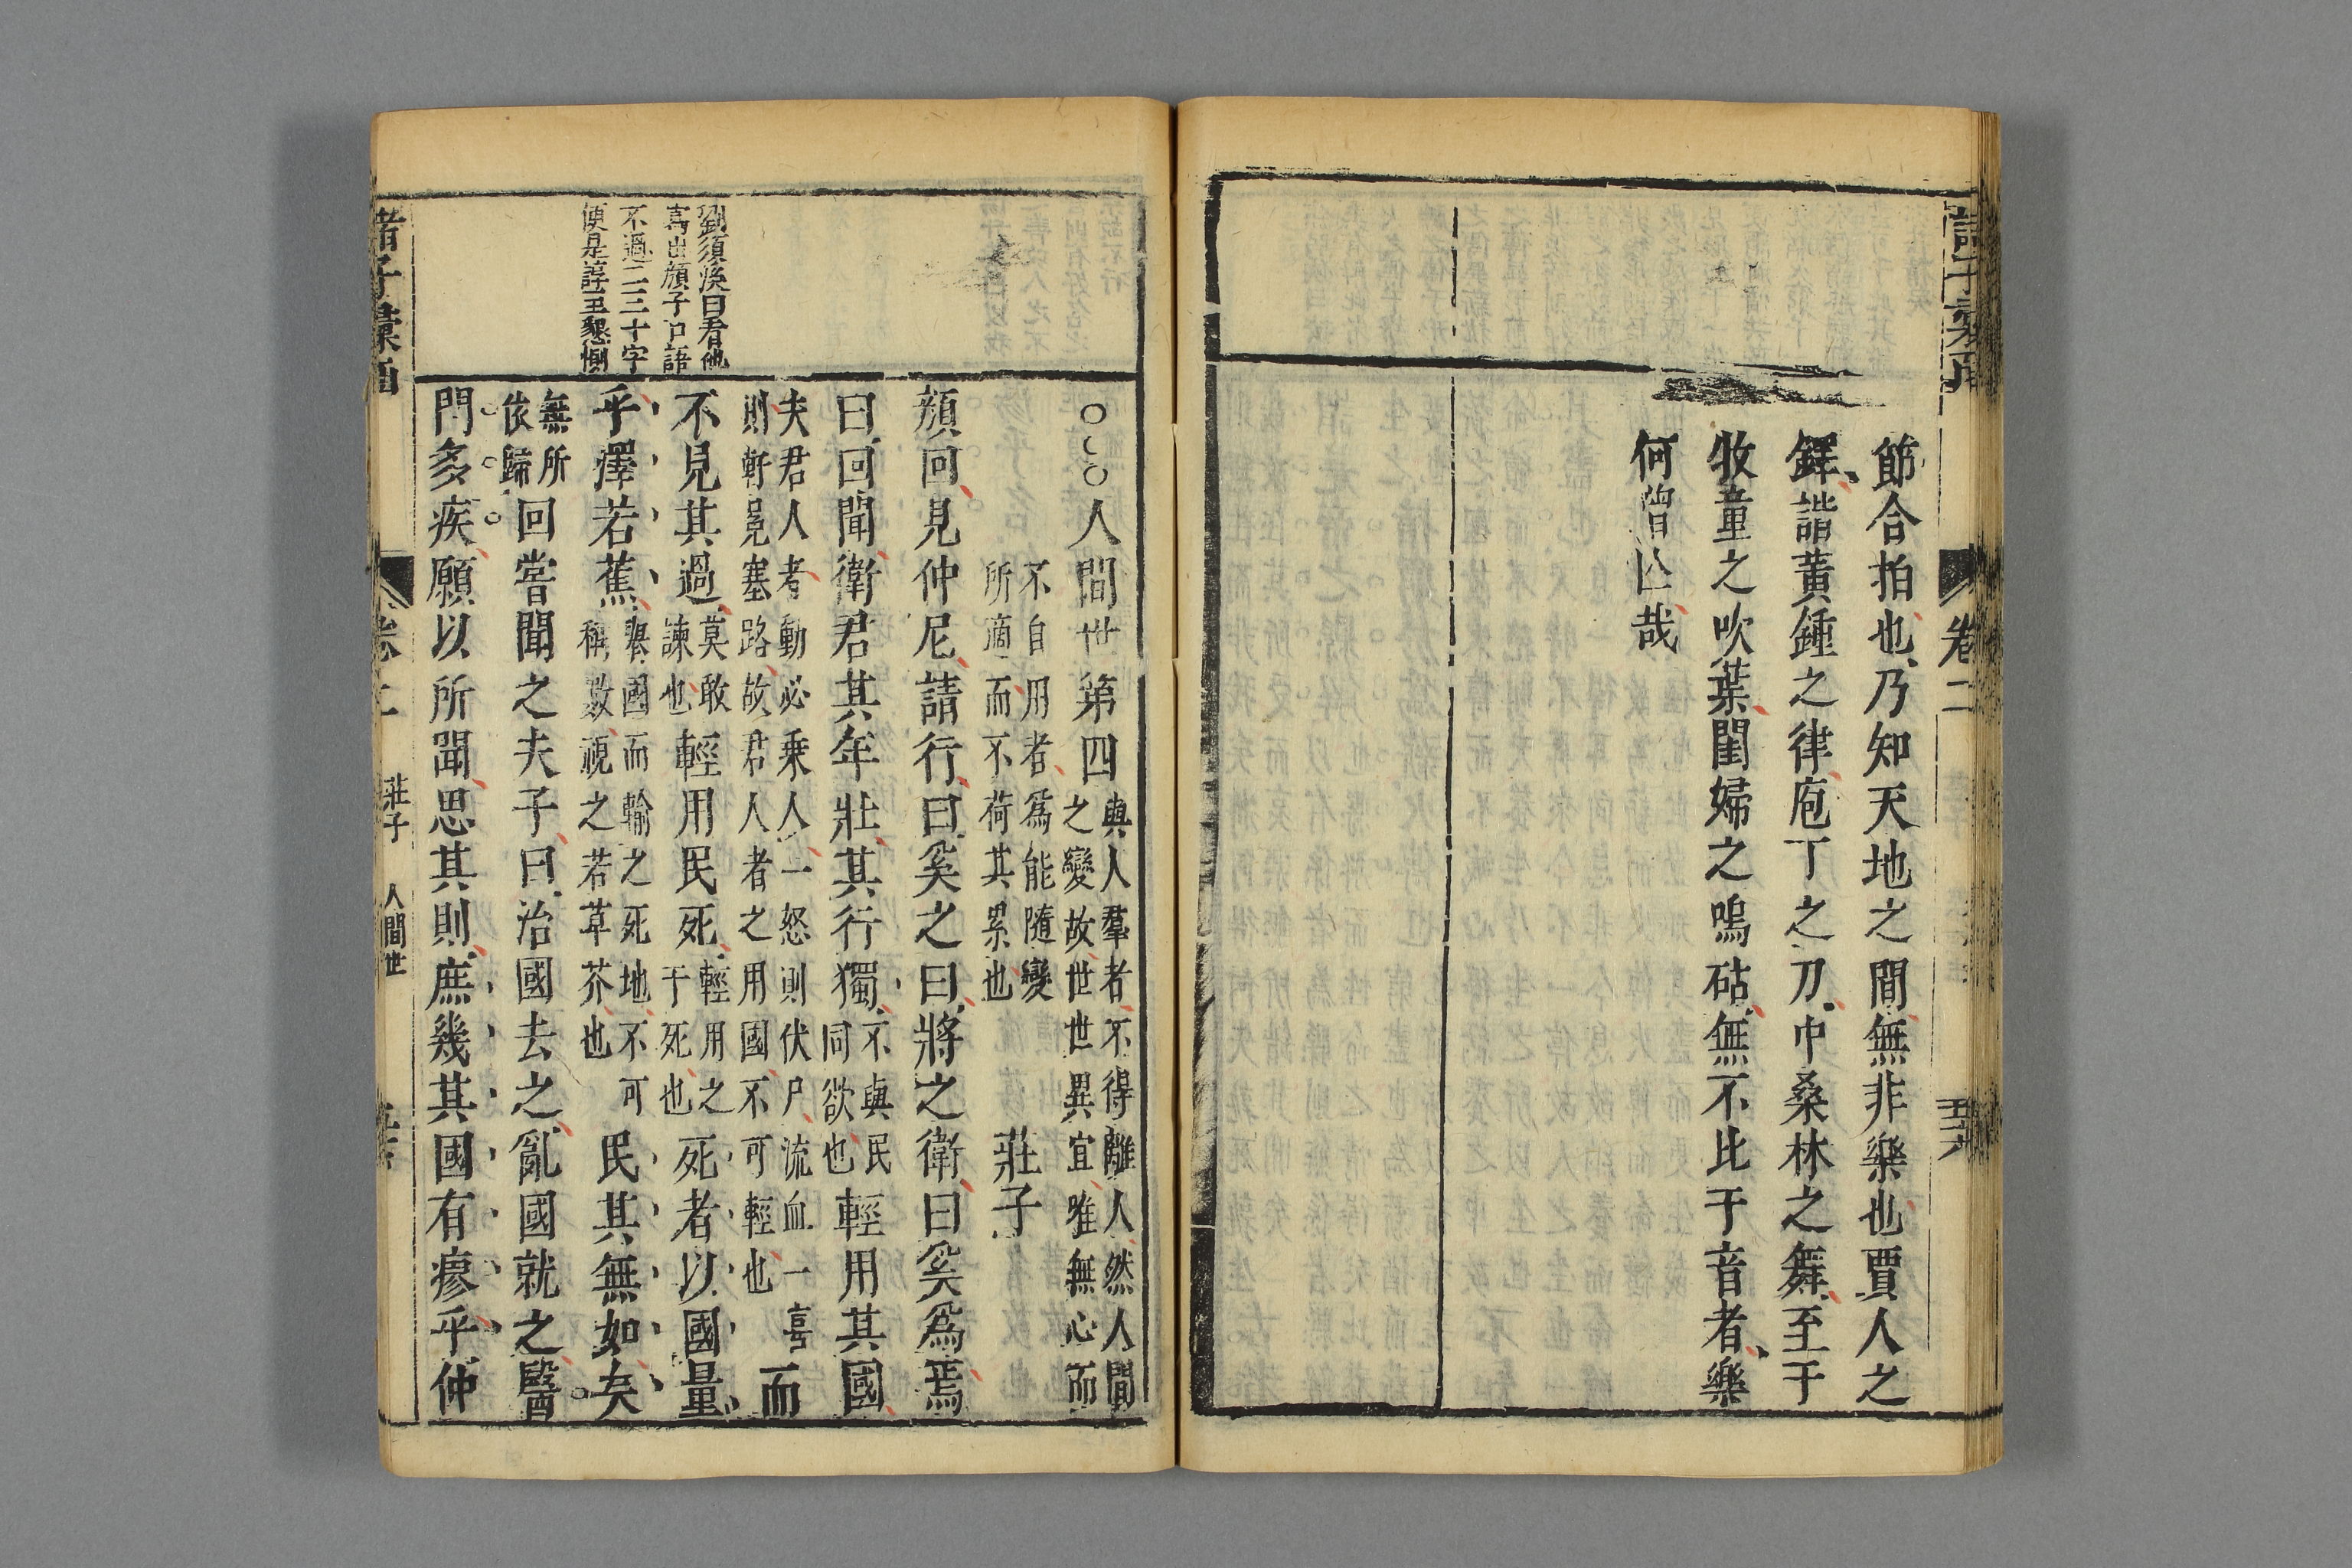 卷二
五十六
節合拍也乃知天地之間無非樂也賈人之
鐸諧黃鍾之律庖丁之刀巾桑林之舞至于
牧童之吹葉閨婦之鳴砧無不比于音者樂
何曾亾哉
劉須溪曰看他
寫出顔子口語
不過二三十字
便是諄至懇惻
○○○人間世第四
與人羣者不得離人然人間
之變故世世異宜唯無心而
不自用者爲能隨變
所適而不荷其累也
莊子
顔回見仲尼請行曰奚之曰將之衛曰奚爲焉
曰回聞衛君其年壯其行獨
不與民
同欲也
輕用其國
夫君人者動必乗人一怒則伏尸流血一喜
則軒冕塞路故君人者之用國不可輕也
而
不見其過
莫敢
諫也
輕用民死
輕用之
于死也
死者以國量
乎澤若蕉
舉國而輸之死地不可
稱數視之若草芥也
民其無如矣
無所
依歸
回嘗聞之夫子曰治國去之亂國就之醫
門多疾願以所聞思其則庶幾其國有瘳乎仲
諸子彙函
卷二
莊子
人間世